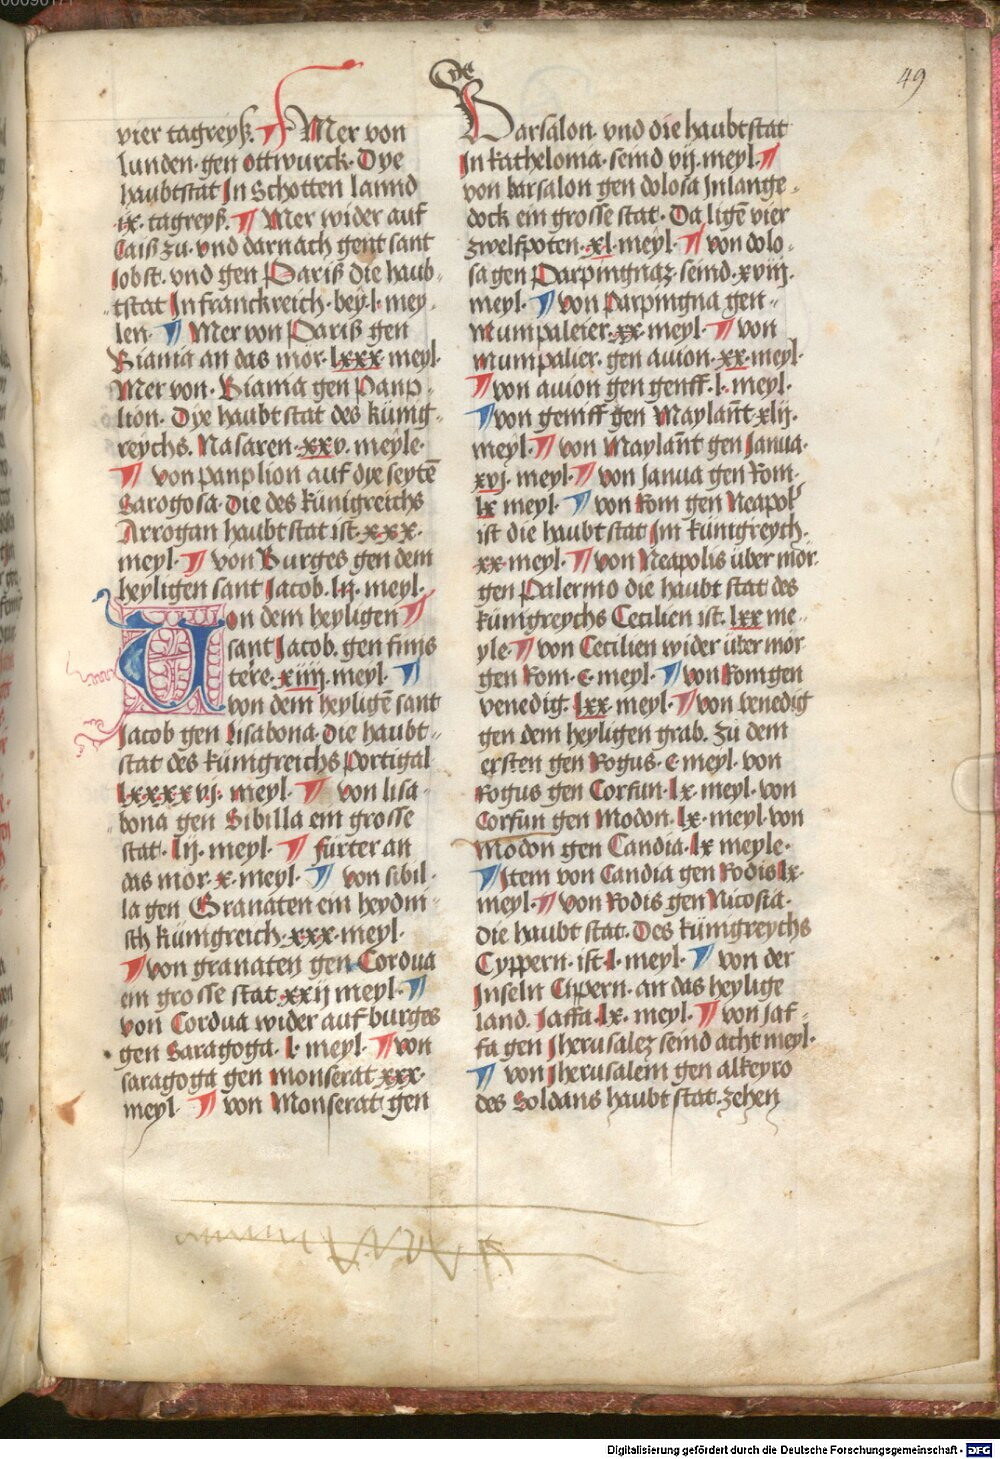 49
vier tagreyß. ¶ Mer von
lunden. gen ottwurck. Dye
haubtstat In Schotten lannd
ix. tagreyß. ¶ Mer wider auf
Caiß zu. vnd darnach gent sant
Jobst. vnd gen Pariß die haub-
tstat In franckreich. bey. l. mey-
len. ¶ Mer von Pariß gen
Biania an das mör. lxxx meyl.
Mer von. Biania gen Panp-
lion. Dye haubtstat des künig-
reychs. Nasaren. xxv. meyle.
¶ von panplion auf dye seytē
Saragosa. Die des künigreichs
Arrogan haubtstat ist. xxx.
meyl. ¶ von Burges gen dem
heyligen sant Jacob. lij. meyl.
Uon dem heyligen ¶
sant Jacob. gen finis
tere. xiiij. meyl. ¶
von dem heyligē sant
Jacob gen lisabona. die haubt-
stat des künigreichs Portigal
lxxxxvj. meyl. ¶ von lisa-
bona gen Sibilla ein grosse
stat. lij. meyl. ¶ fürter an
das mör. x. meyl. ¶ von sibil-
la gen Granaten ein heydni-
sch künigreich. xxx. meyl.
¶ von granaten gen Cordua
ein grosse stat xxij meyl. ¶
von Cordua wider auf burges
gen Saragoga. l. meyl. ¶ von
saragoga gen monserat xxx.
meyl. ¶ von Monserat gen
Barsalon. vnd die haubtstat
In katheloma. seind vij. meyl. ¶
von barsalon gen dolosa Inlange-
dock ein grosse stat. Da ligē vier
zwelfpoten. xl. meyl. ¶ von dolo-
sa gen Parpingnaz. seind. xviij.
meyl. ¶ von Parpingna gen-
Mumpaleier. xx. meyl. ¶ von
mumpalier. gen auion. xx. meyl.
¶ von auion gen genff. l. meyl.
¶ von genff gen Maylant xlij.
meyl. ¶ von Maylant gen Janua.
xvj. meyl. ¶ von Janua gen Rom.
lx meyl. ¶ von Rom gen Neapol
ist die haubtstat Im künigreych.
xx. meyl. ¶ von Neapolis über mör.
gen Palermo die haubt stat des
künigreychs Cecilien ist. lxx me-
yle. ¶ von Cecilien wider über mör
gen Rom. c. meyl. ¶ von Rom gen
venedig. lxx. meyl. ¶ von venedig
gen dem heyligen grab. zu dem
ersten gen Rogus. c meyl. von
Rogus gen Corfun. lx. meyl. von
Corfun gen Modon. lx. meyl. von
Modon gen Candia. lx meyle.
¶ Item von Candia gen Rodis lx.
meyl. ¶ von Rodis gen Nicosia.
die haubt stat. Des künigreychs
Cyppern. ist. l. meyl. ¶ von der
Inseln Cippern. an das heylige
land. Jaffa. lx. meyl. ¶ von Jaf-
fa gen Jherusalez seind acht meyl.
¶ von Jherusalem gen alkeyro
des Soldans haubt stat. zehen
Digitalisierung gefördert durch die Deutsche Forschungsgemeinschaft - DFG